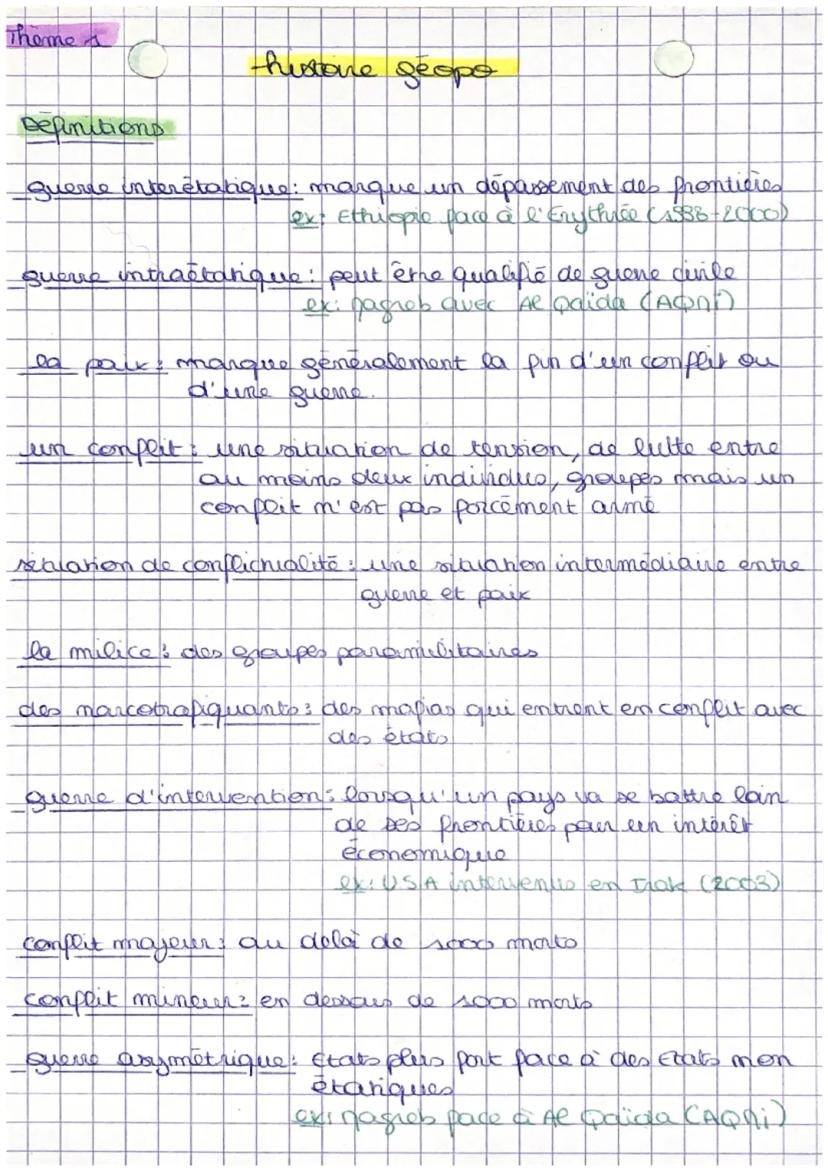 Thème 1
histoire géopo
Définitions
guerre interétatique : marque un dépassement des frontières
ex : Ethiopie face à l'Erythrée (1998-2000)
guerre intraétatique : peut être qualifié de guerre civile
ex : Magreb avec Al Qaïda (AQMi)
la paix : marque généralement la fin d'un conflit ou
d'une guerre.
un conflit : une situation de tension, de lutte entre
au moins deux individus, groupes mais un
conflit n'est pas forcément armé
situation de conflictualité : une situation intermédiaire entre
guerre et paix
la milice : des groupes paramilitaires
des narcotrafiquants : des mafias qui entrent en conflit avec
des états
guerre d'intervention : lorsqu'un pays va se battre loin
de ses frontières pour un intérêt
économique
ex : USA intervenus en Irak (2003)
conflit majeur : au delà de 1000 morts
conflit mineur : en dessous de 1000 morts
guerre asymétrique : Etats plus fort face à des Etats non
étatiques
ex : Magreb face à Al Qaida (AQMi)